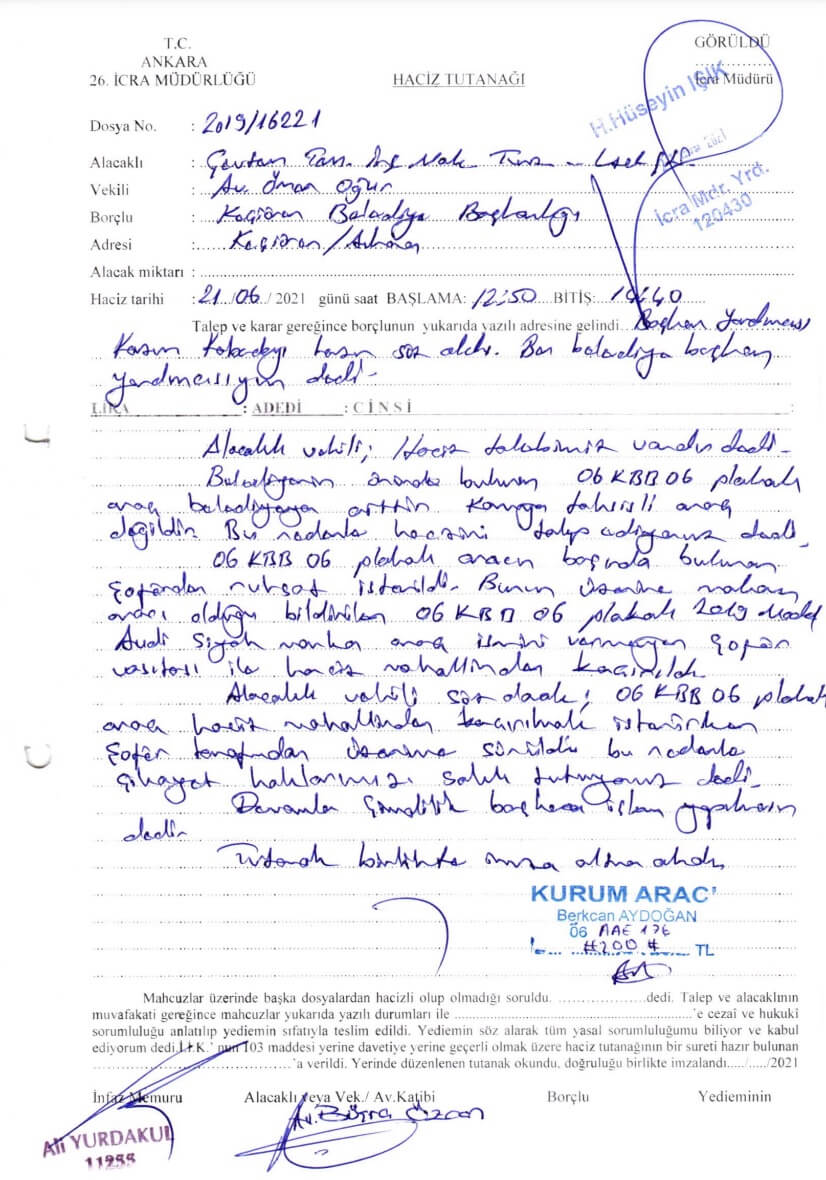 T.C.
ANKARA
26. İCRA MÜDÜRLÜĞÜ
HACİZ TUTANAĞI
GÖRÜLDÜ
İcra Müdürü
H.Hüseyin IŞIK
İcra Mdr. Yrd.
120430
Dosya No. : 2019/16221
Alacaklı :
Vekili : Av.
Borçlu : Keçiören Belediye Başkanlığı
Adresi : Keçiören/Ankara
Alacak miktarı :
Haciz tarihi : 21/06/2021 günü saat BAŞLAMA: 12:50 BİTİŞ:
Talep ve karar gereğince borçlunun yukarıda yazılı adresine gelindi. Başkan Yardımcısı
söz aldı. Ben belediye başkan
yardımcısıyım dedi.
LİRA : ADEDİ : CİNSİ :
Alacaklı vekili; Haciz talebimiz vardır dedi.
Belediyenin önünde bulunan 06 KBB 06 plakalı
araç belediyeye aittir. Kamuya tahsisli araç
değildir. Bu nedenle haczini talep ediyoruz dedi.
06 KBB 06 plakalı aracın başında bulunan
şoförden ruhsat istenildi. Bunun üzerine makam
aracı olduğu bildirilen 06 KBB 06 plakalı 2019 Model
Audi Siyah marka araç ismini vermeyen şoför
vasıtası ile haciz mahallinden kaçırıldı.
Alacaklı vekili söz aldı; 06 KBB 06 plakalı
araç haciz mahallinden kaçırılmak istenirken
şoför tarafından üzerime sürüldü bu nedenle
şikayet haklarımızı saklı tutuyoruz dedi.
Devamla şimdilik başkaca işlem yapılmasın
dedi.
Tutanak birlikte imza altına alındı.
KURUM ARAC'
Berkcan AYDOĞAN
06 AAE 176
#200# TL
Mahcuzlar üzerinde başka dosyalardan hacizli olup olmadığı soruldu. ....................dedi. Talep ve alacaklının
muvafakati gereğince mahcuzlar yukarıda yazılı durumları ile ....................'e cezai ve hukuki
sorumluluğu anlatılıp yediemin sıfatıyla teslim edildi. Yediemin söz alarak tüm yasal sorumluluğumu biliyor ve kabul
ediyorum dedi.İ.İ.K.' nun 103 maddesi yerine davetiye yerine geçerli olmak üzere haciz tutanağının bir sureti hazır bulunan
....................'a verildi. Yerinde düzenlenen tutanak okundu, doğruluğu birlikte imzalandı...../...../2021
İnfaz Memuru Alacaklı veya Vek./ Av.Katibi Borçlu Yedieminin
Av. Büşra Özcan
Ali YURDAKUL
11255